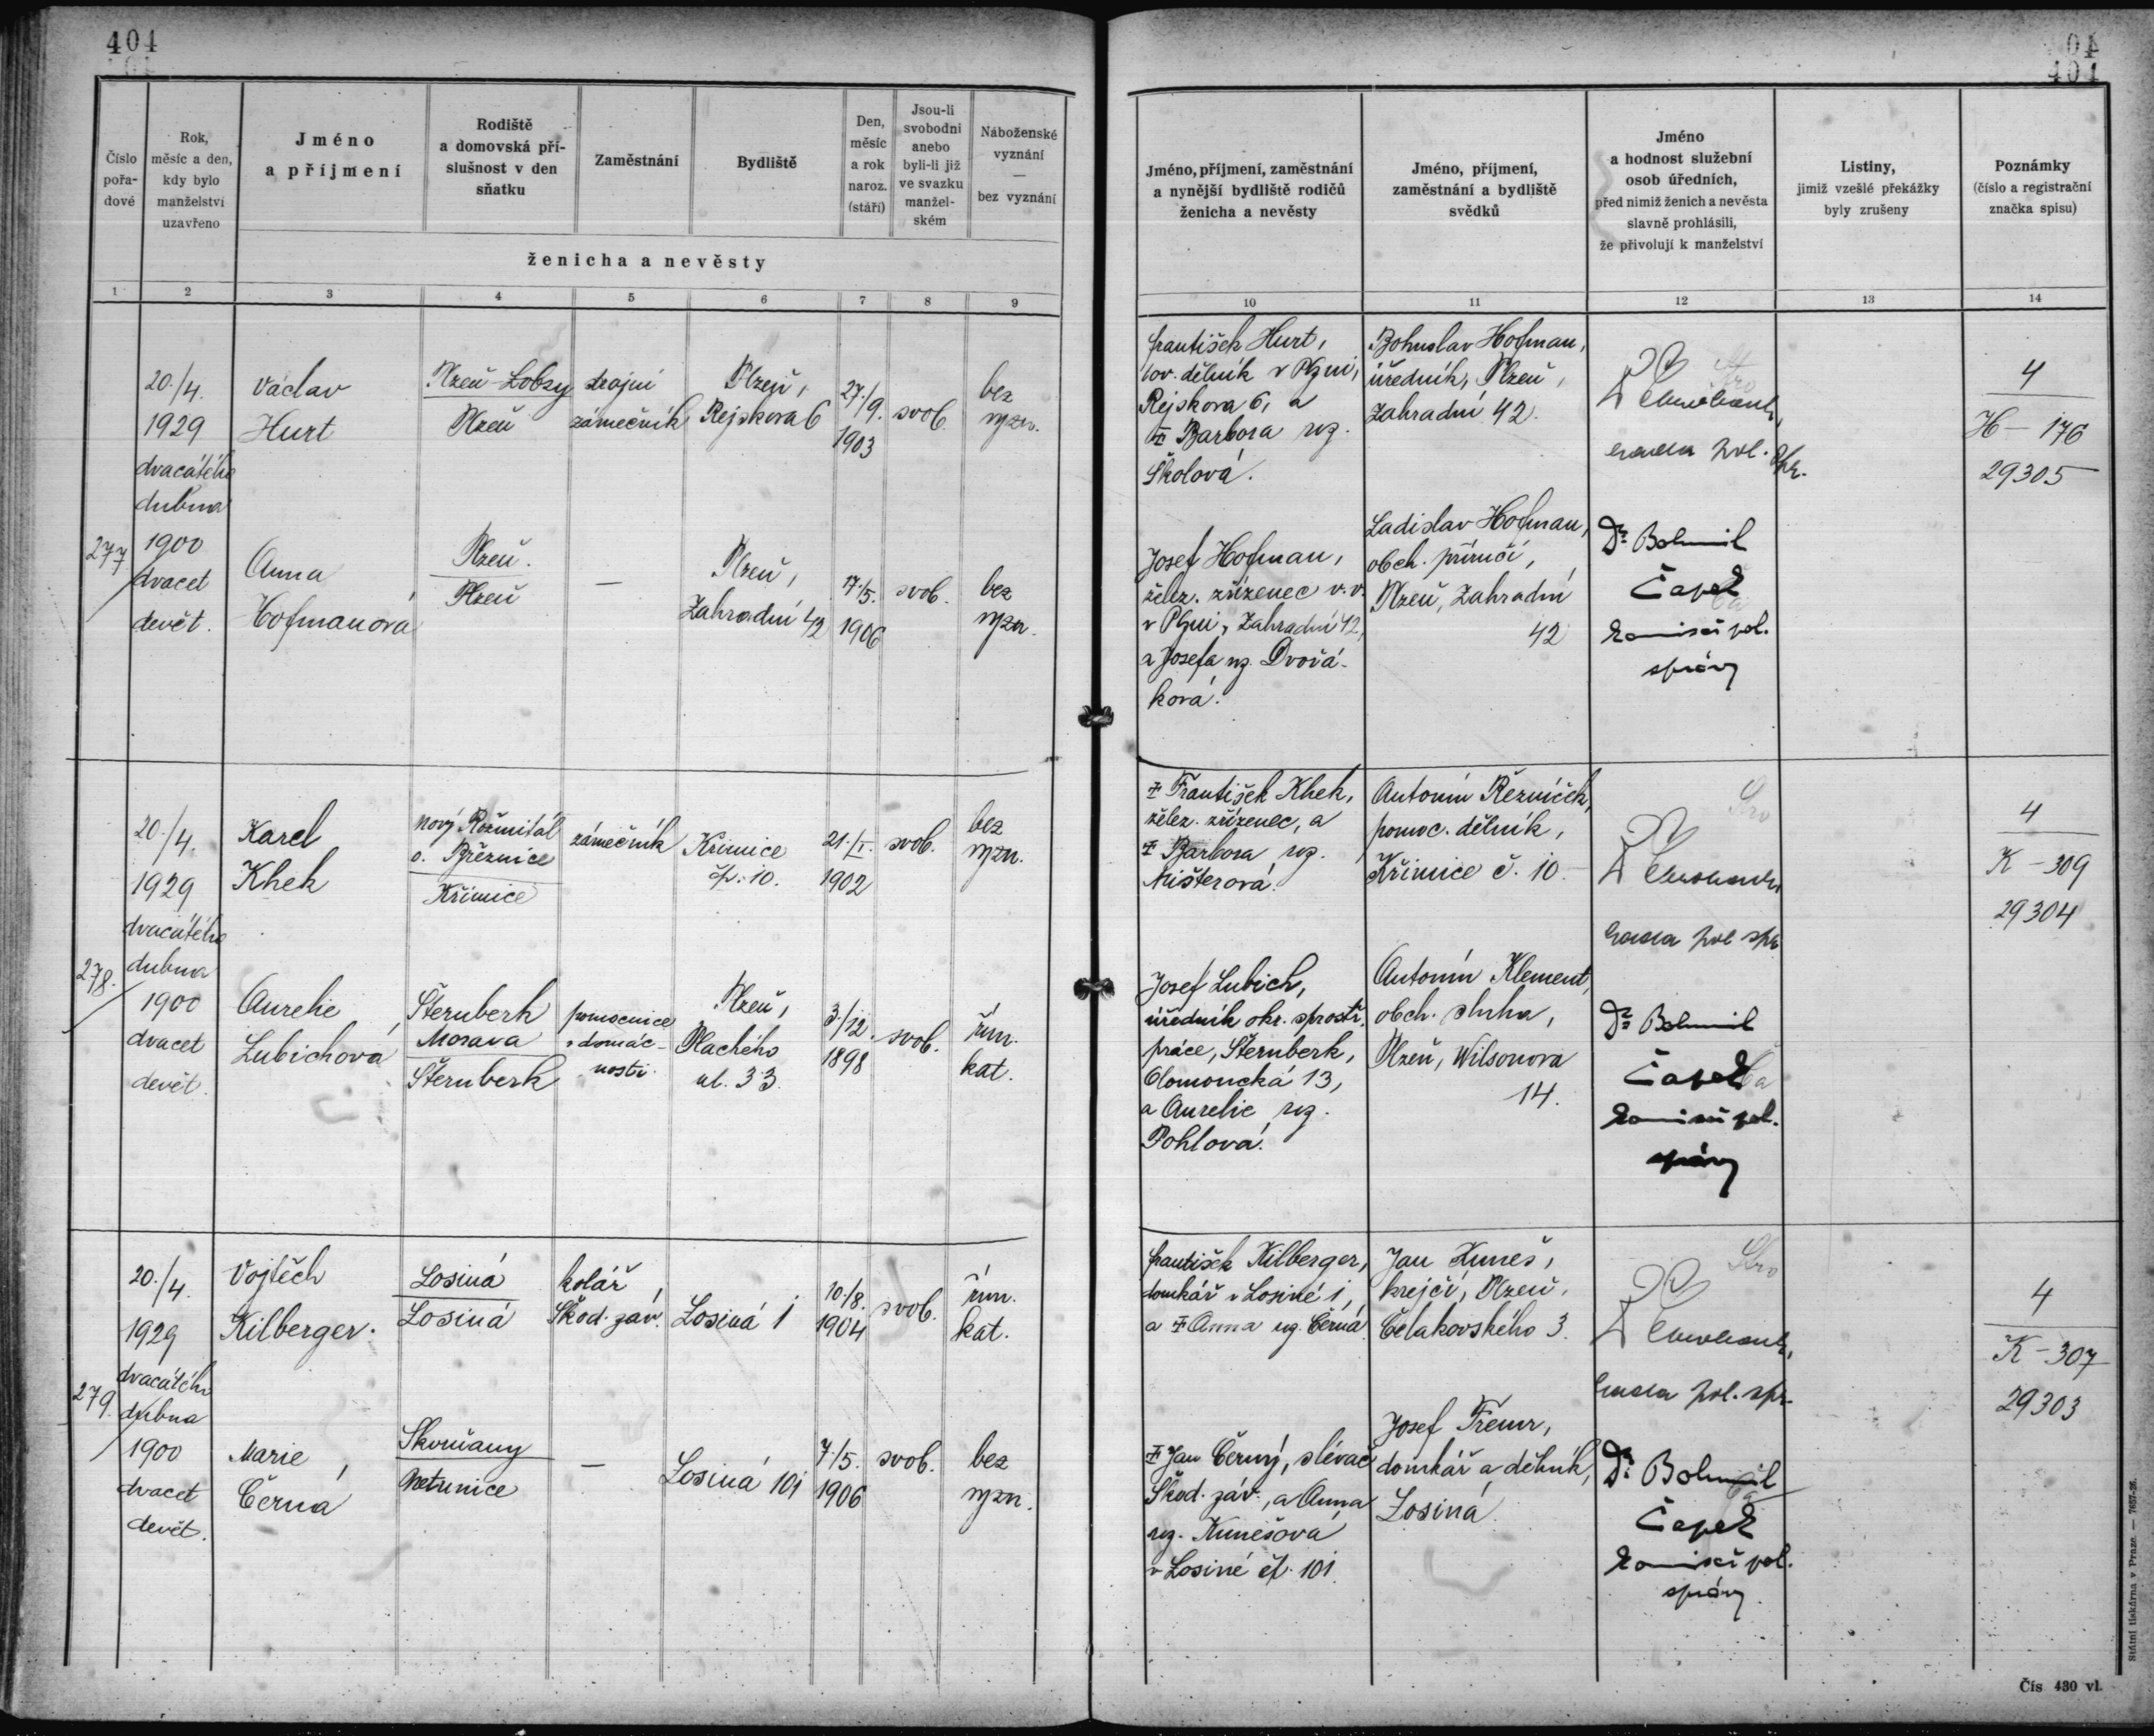 404
404
Číslo pořa-dové
Rok, měsíc a den, kdy bylo manželství uzavřeno
Jméno a příjmení
Rodiště a domovská pří-slušnost v den sňatku
Zaměstnání
Bydliště
Den, měsíc a rok naroz. (stáří)
Jsou-li svobodni anebo byli-li již ve svazku manžel-ském
Náboženské vyznání — bez vyznání
ženicha a nevěsty
1 2 3 4 5 6 7 8 9
Jméno, příjmení, zaměstnání a nynější bydliště rodičů ženicha a nevěsty
Jméno, příjmení, zaměstnání a bydliště svědků
Jméno a hodnost služební osob úředních, před nimiž ženich a nevěsta slavně prohlásili, že přivolují k manželství
Listiny, jimiž vzešlé překážky byly zrušeny
Poznámky (číslo a registrační značka spisu)
10 11 12 13 14
277
20./4.
1929
dvacátého
dubna
1900
dvacet
devět.
Václav
Hurt
Plzeň-Lobzy
Plzeň
strojní
zámečník
Plzeň,
Rejskova 6
27./9.
1903
svob.
bez
vyzn.
Anna
Hofmanová
Plzeň.
Plzeň
—
Plzeň,
Zahradní 42
17./5.
1906
svob.
bez
vyzn.
František Hurt,
tov. dělník v Plzni,
Rejskova 6, a
Barbora roz.
Školová.
Josef Hofman,
želez. zřízenec v. v.
v Plzni, Zahradní 42,
a Josefa roz. Dvořá-
ková.
Bohuslav Hofman,
úředník, Plzeň,
Zahradní 42.
Ladislav Hofman,
obch. příručí,
Plzeň, Zahradní
42
rada pol. spr.
Dr. Bohumil
Čapek
komisař pol.
správy
4
H - 176
29305
278.
20./4.
1929
dvacátého
dubna
1900
dvacet
devět.
Karel
Khek
nový Rožmitál
o. Březnice
Křimice
zámečník
Křimice
čp. 10.
21./I.
1902
svob.
bez
vyzn.
Aurelie
Lubichová
Šternberk,
Morava
Šternberk
pomocnice
v domác-
nosti.
Plzeň,
Plachého
ul. 33.
3./12.
1898
svob.
řím.
kat.
František Khek,
želez. zřízenec, a
Barbora roz.
Mišterová.
Josef Lubich,
úředník okr. sprostř.
práce, Šternberk,
Olomoucká 13,
a Aurelie roz.
Pohlová.
Antonín Řezníček,
pomoc. dělník,
Křimice č. 10.
Antonín Klement,
obch. sluha,
Plzeň, Wilsonova
14.
rada pol. spr.
Dr. Bohumil
Čapek
komisař pol.
správy
4
K - 309
29304
279.
20./4.
1929
dvacátého
dubna
1900
dvacet
devět.
Vojtěch
Kilberger.
Losiná
Losiná
kolář,
Škod. záv.
Losiná 1
10./8.
1904
svob.
řím.
kat.
Marie
Černá
Skvrňany
Netunice
—
Losiná 101
7./5.
1906
svob.
bez
vyzn.
František Kilberger,
domkář v Losiné 1,
a Anna roz. Černá.
Jan Černý, slévač
Škod. záv., a Anna
roz. Kunešová
v Losiné čp. 101.
Jan Kuneš,
krejčí, Plzeň,
Čelakovského 3.
Josef Treml,
domkář a dělník,
Losiná.
rada pol. spr.
Dr. Bohumil
Čapek
komisař pol.
správy
4
K - 307
29303
Státní tiskárna v Praze. — 7657-26.
Čís 430 vl.